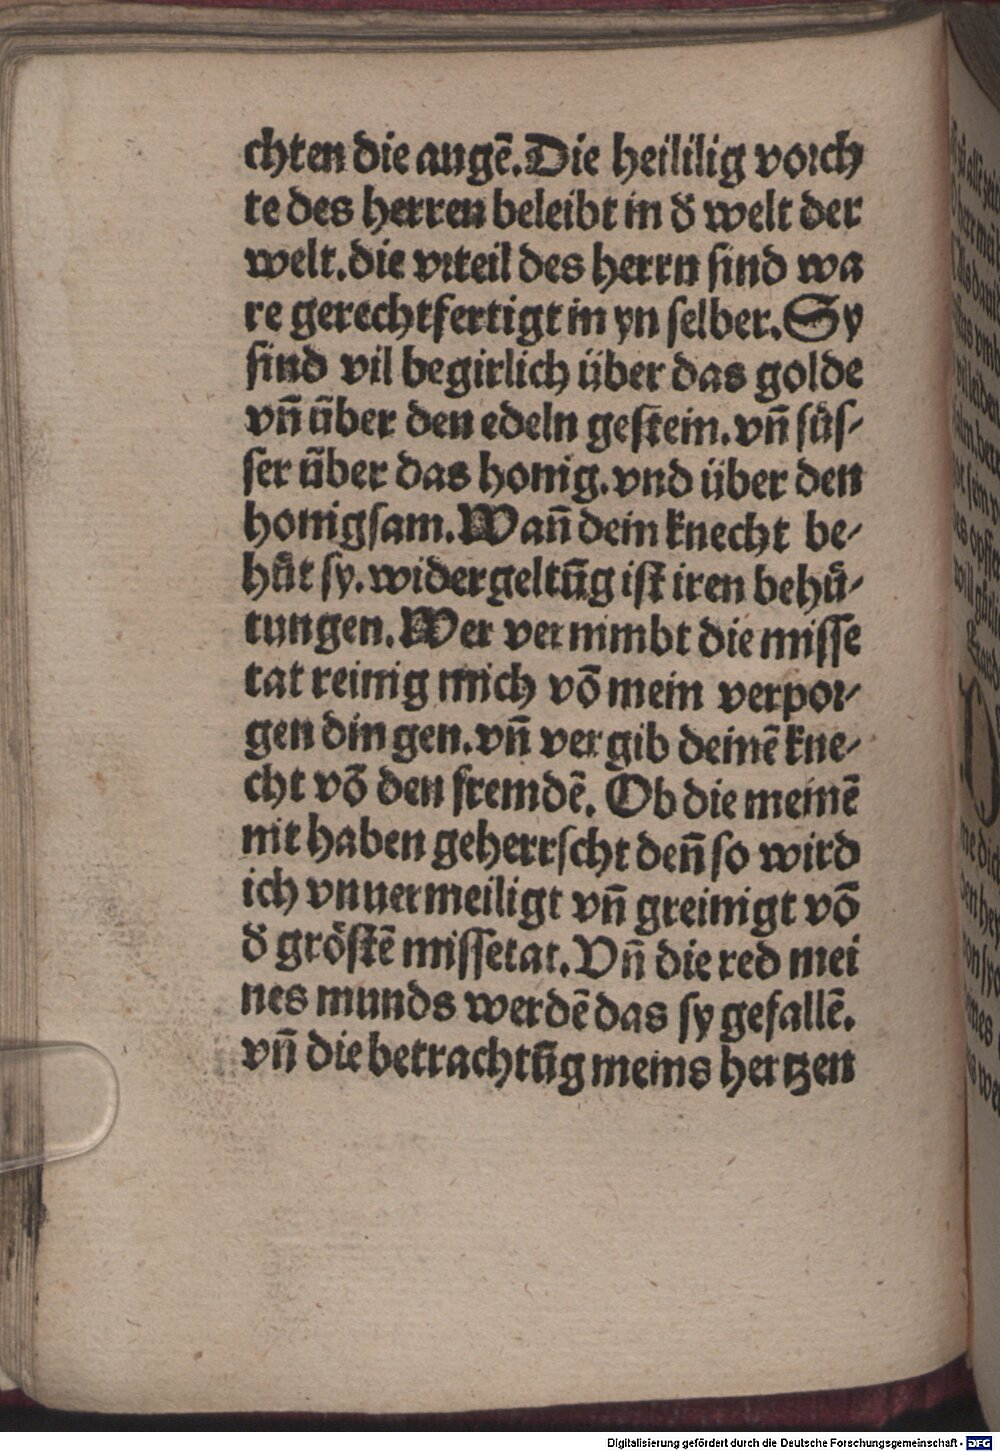 chten die augẽ. Die heililig vorch
te des herren beleibt in đ welt der
welt. die vrteil des herrn sind wa
re gerechtfertigt in yn selber. Sy
sind vil begirlich über das golde
vñ über den edeln gestein. vñ süs-
ser über das honig. vnd über den
honigsam. Wañ dein knecht be-
hüt sy. widergeltũg ist iren behü-
tungen. Wer vernimbt die misse
tat reinig mich võ mein verpor-
gen dingen. vñ vergib deinẽ kne-
cht võ den fremdẽ. Ob die meinẽ
nit haben geherrscht deñ so wird
ich vnuermeiligt vñ greinigt võ
đ gröstẽ missetat. Vñ die red mei
nes munds werdẽ das sy gefallẽ.
vñ die betrachtũg meins hertzen
Digitalisierung gefördert durch die Deutsche Forschungsgemeinschaft - DFG